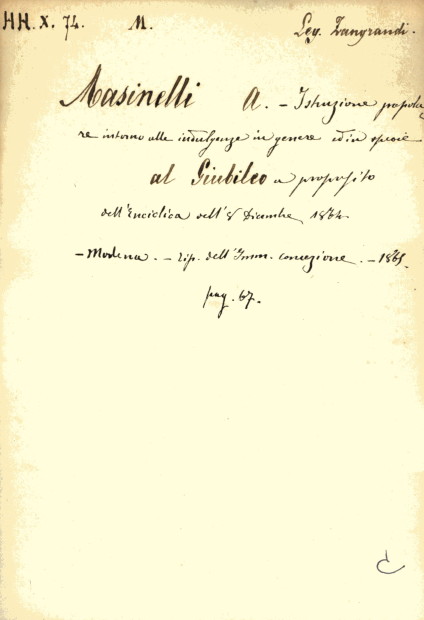 HH. X. 74. M. Leg. Zangrandi.
Masinelli A. - Istruzione popola
re intorno alle indulgenze in genere ed in specie
al Giubileo a proposito
dell'Enciclica dell'8 Dicembre 1864
- Modena. - Tip. dell'Imm. concezione. - 1865.
pag. 67.
C